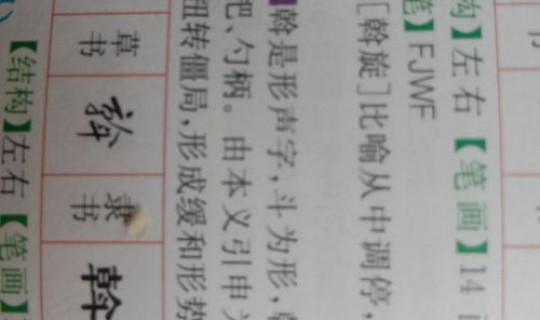 构】左右 【笔画】14
笔】FJWF
[斡旋]比喻从中调停,
斡是形声字,斗为形,
把、勺柄。由本义引申
扭转僵局,形成缓和形势
草书 斡 隶书 斡
【结构】左右【笔画】